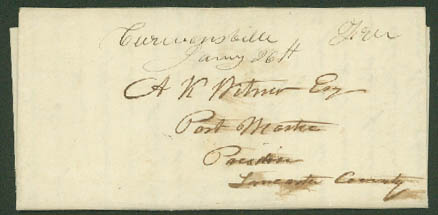 Curwensville Free
Jany 26th
A K Witmer Esq
Post Master
Lancaster County